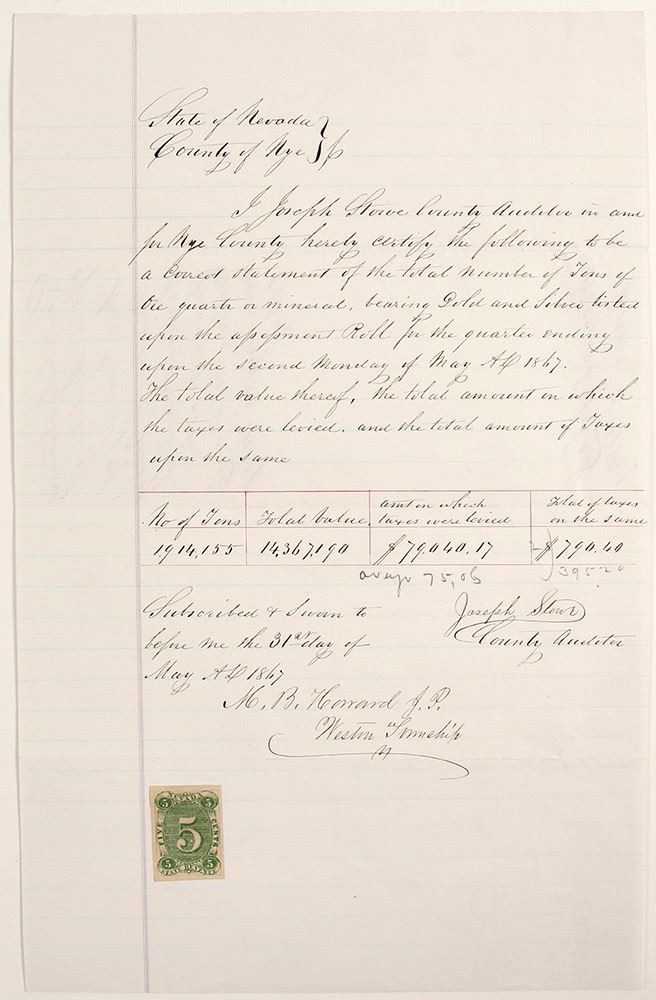 State of Nevada
County of Nye } ss
I Joseph Stowe County Auditor in and
for Nye County hereby certify the following to be
a Correct statement of the total number of Tons of
Ore quartz or mineral, bearing Gold and Silver listed
upon the assessment Roll for the quarter ending
upon the second Monday of May AD 1867.
The total value thereof, the total amount on which
the taxes were levied, and the total amount of Taxes
upon the same
No of Tons Total Value. amt on which taxes were levied Total of taxes on the same
1914,155 143,671,90 $79,040,17 2 $790,40
aveg 75,06 395 20
Subscribed & Sworn to
before me the 31st day of
May AD 1867
Joseph Stowe
County Auditor
M. B. Howard J. P.
Weston Township
NEVADA
5 5
FIVE 5 CENTS
5 5
STATE REVENUE